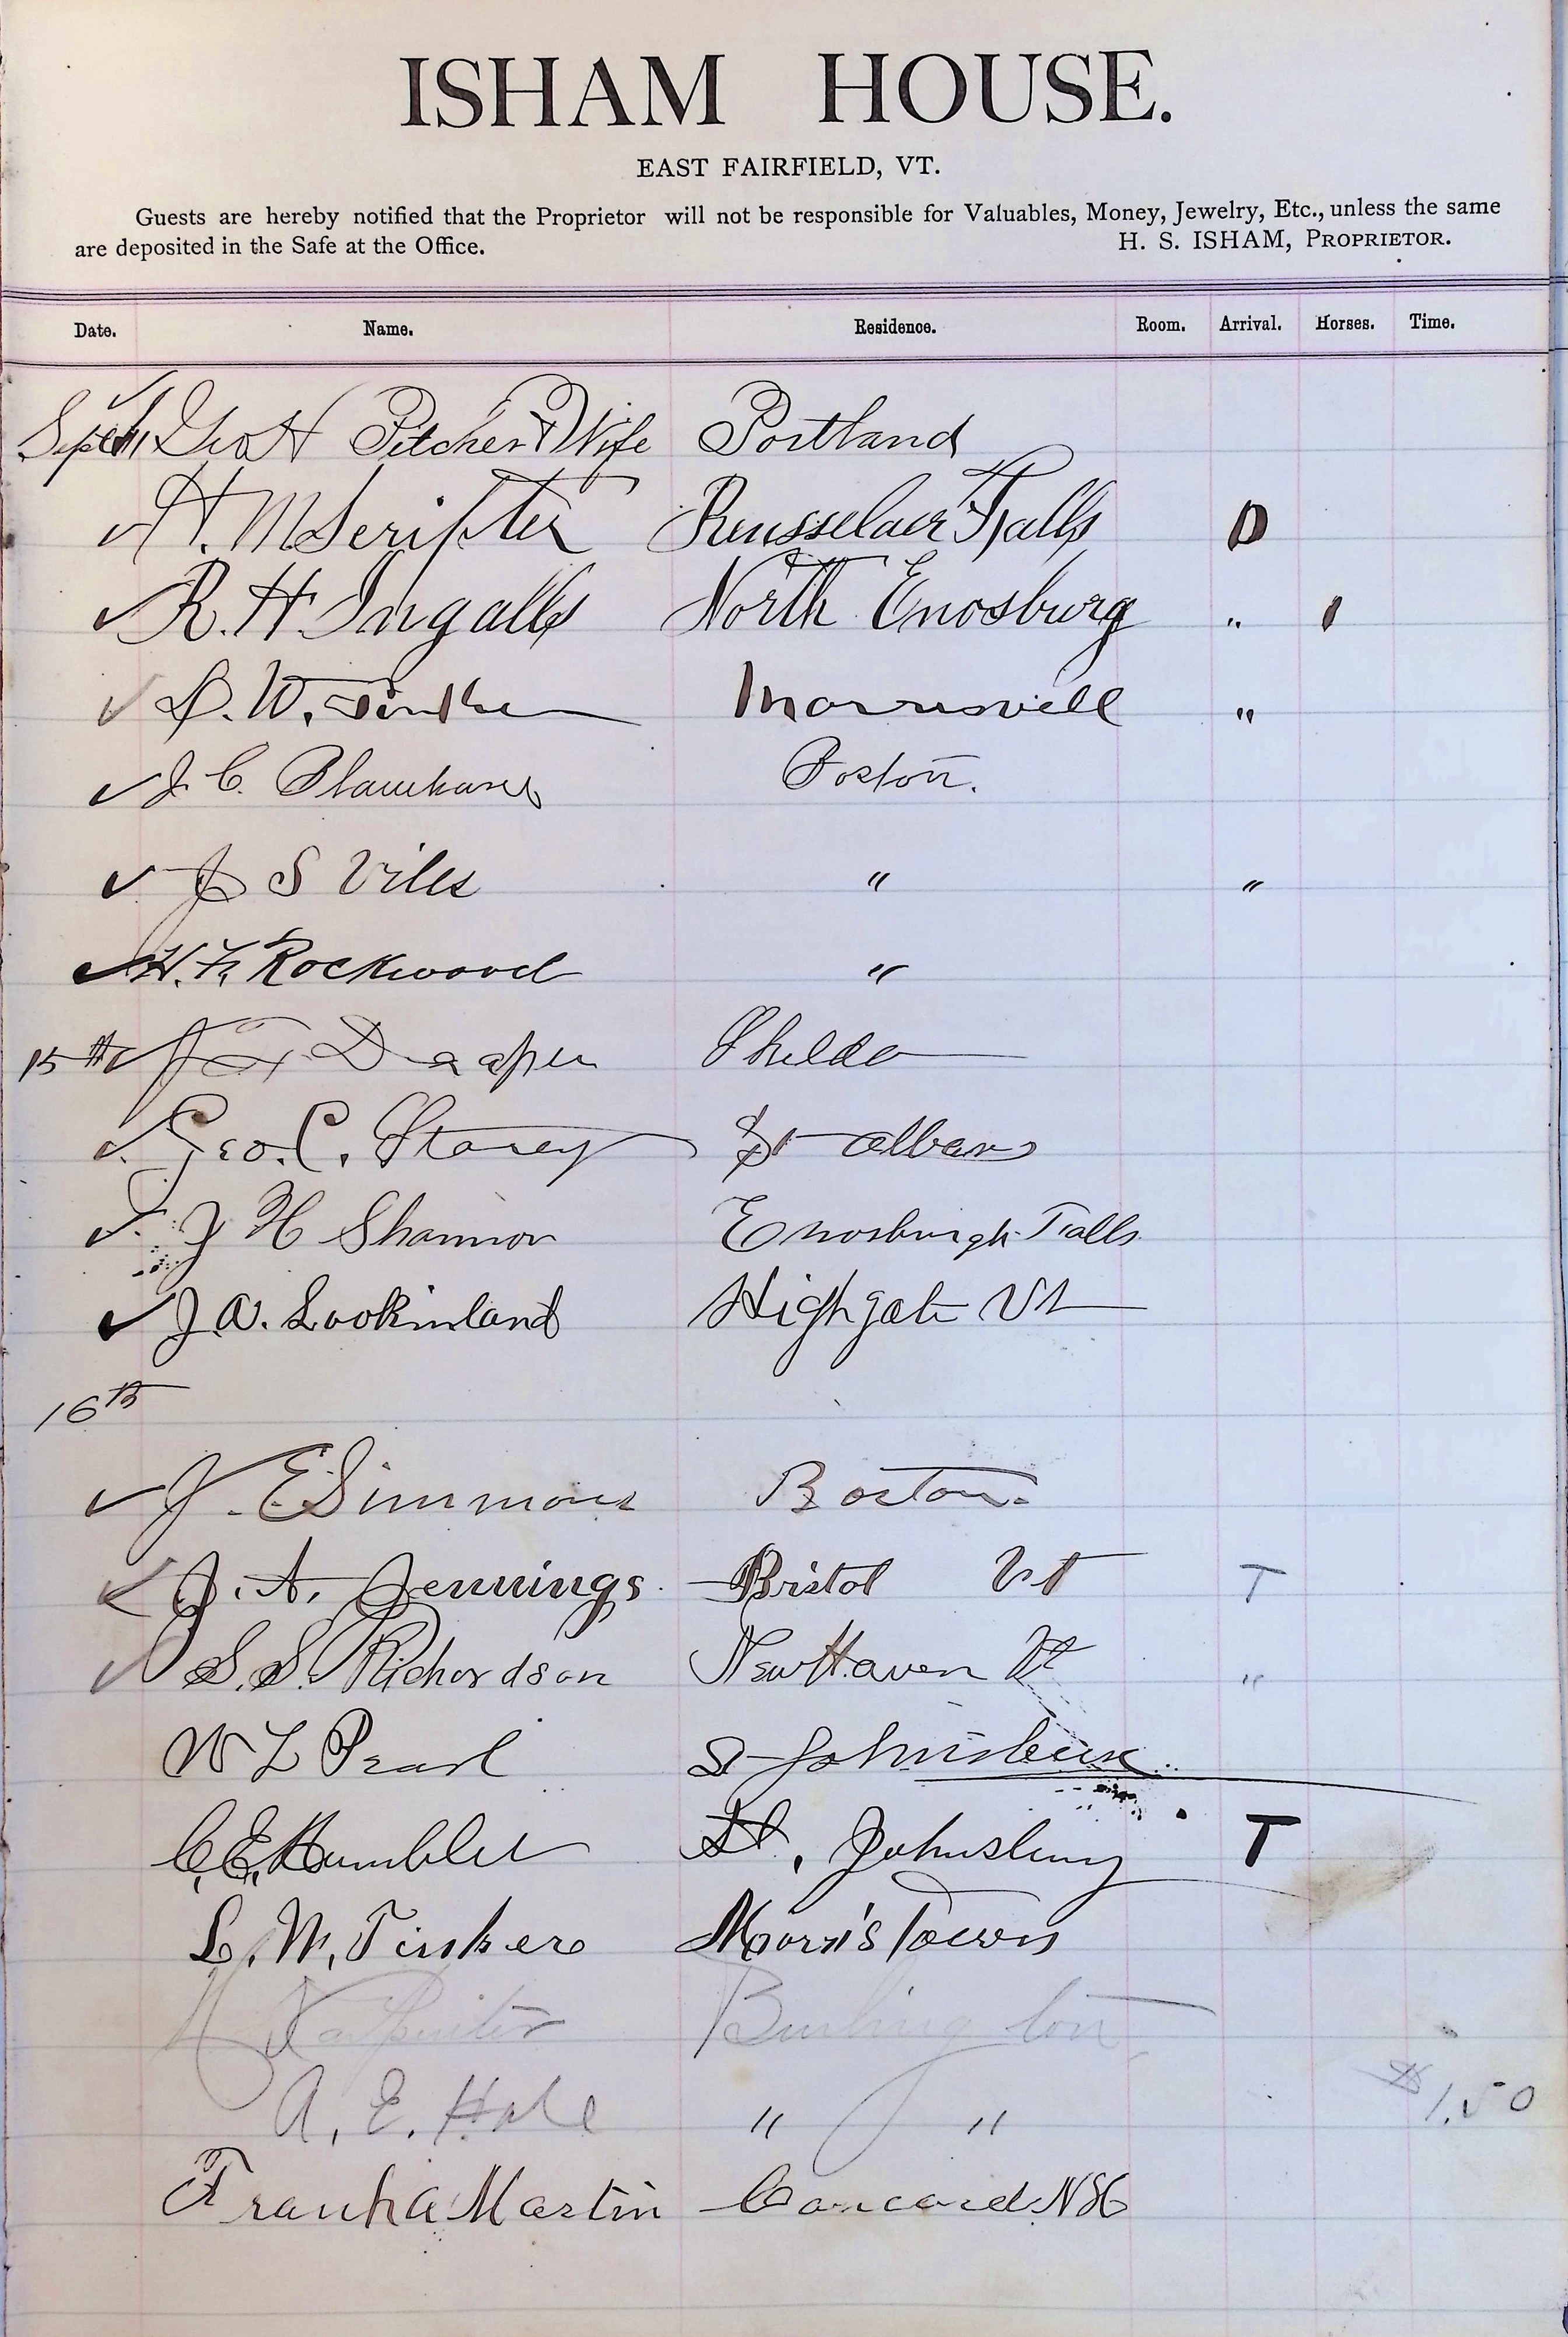 ISHAM HOUSE.
EAST FAIRFIELD, VT.
Guests are hereby notified that the Proprietor will not be responsible for Valuables, Money, Jewelry, Etc., unless the same
are deposited in the Safe at the Office. H. S. ISHAM, PROPRIETOR.
Date. Name. Residence. Room. Arrival. Horses. Time.
Sept Geo H Pitcher & Wife Portland
H. M Scripter Rensselaer Falls D
R. H Ingalls North Enosburg " 1
W. Morrisvill "
J. C. Boston.
J S Viles " "
H. F. Rockwood "
15th Draper Sheldo
Geo. C. Storey St Albans
J H Shannon Enosburgh Falls
J. W. Lookinland Highgate Vt
16th
J. E Simmons Boston.
J. A. Jennings Bristol Vt T
S. S. Richardson New Haven Vt "
W L Pearl St Johnsbury
C. E. Humblet St. Johnsbury T
L. W. Tinker Morris Town
Burlington
A. E. Hale " " $1.50
Frank A Martin Concord NH